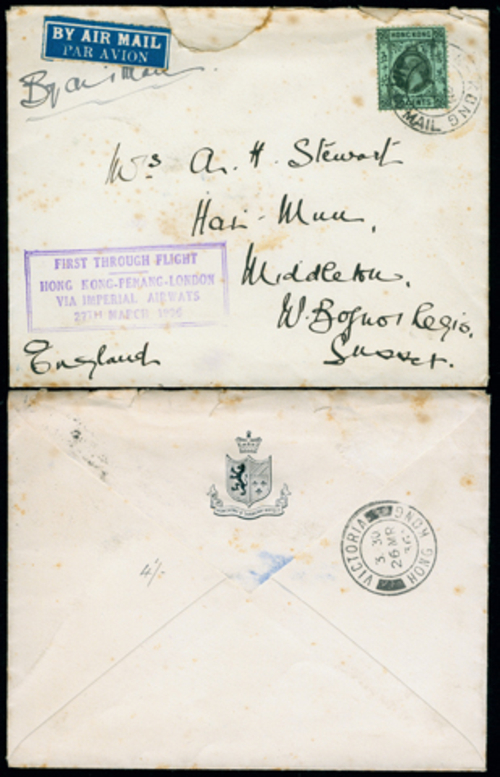 BY AIR MAIL
PAR AVION
By air mail
HONG KONG
CENTS
MAIL KONG
Mrs A. H. Stewart
Middleton,
W. Bognor Regis.
Sussex.
England
FIRST THROUGH FLIGHT
HONG KONG-PENANG-LONDON
VIA IMPERIAL AIRWAYS
27TH MARCH 1936
4/-
VICTORIA HONG KONG
3. 30
26 MR
36